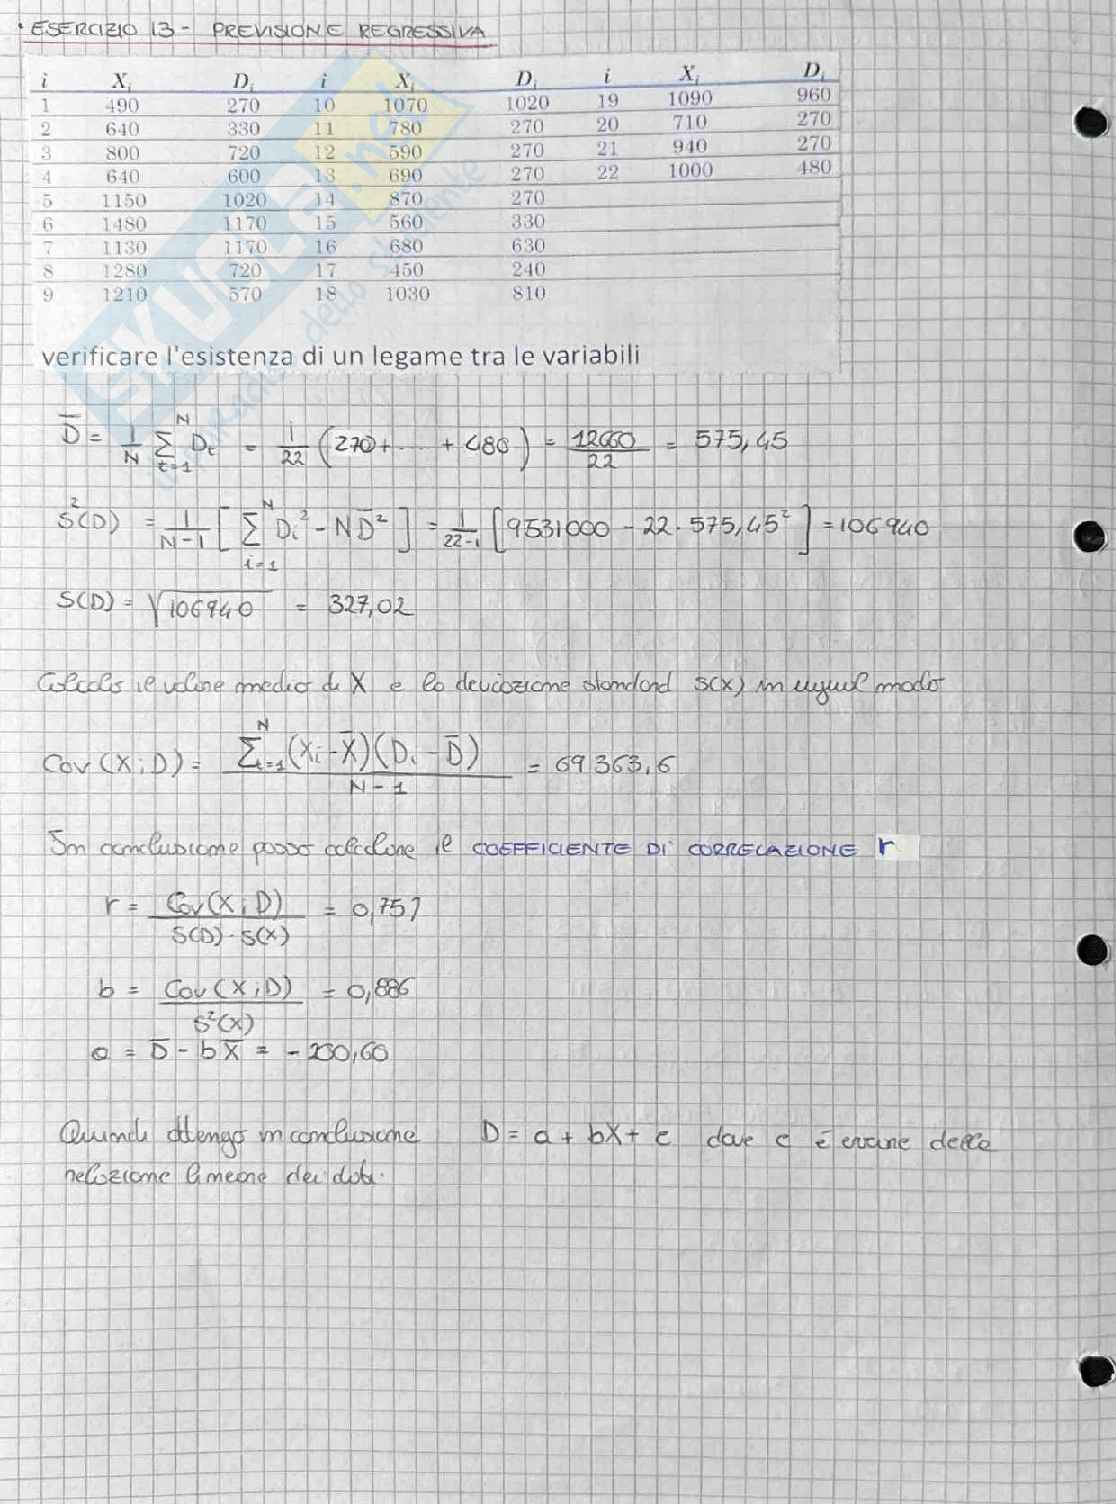 • ESERCIZIO 13 - PREVISIONE REGRESSIVA
i Xi Di i Xi Di i Xi Di
1 490 270 10 1070 1020 19 1090 960
2 640 330 11 780 270 20 710 270
3 800 720 12 590 270 21 940 270
4 640 600 13 690 270 22 1000 480
5 1150 1020 14 870 270
6 1480 1170 15 560 330
7 1130 1170 16 680 630
8 1280 720 17 450 240
9 1210 570 18 1030 810
verificare l'esistenza di un legame tra le variabili
D̄ = 1/N ∑_{t=1}^{N} Dt = 1/22 (270 + .... + 480) = 12660/22 = 575,45
S²(D) = 1/(N-1) [∑_{i=1}^{N} Di² - N D̄²] = 1/(22-1) [9531000 - 22 · 575,45²] = 106940
S(D) = √106940 = 327,02
Calcolo il valore medio di X e la deviazione standard S(X) in ugual modo
Cov(X;D) = ∑_{i=1}^{N} (Xi - X̄)(Di - D̄) / (N-1) = 69363,6
In conclusione posso calcolare il COEFFICIENTE DI CORRELAZIONE r
r = Cov(X;D) / (S(D) · S(X)) = 0,757
b = Cov(X;D) / S²(X) = 0,886
a = D̄ - bX̄ = -200,60
Quindi ottengo in conclusione D = a + bX + e dove e è errore della
relazione lineare dei dati.
SKUOLA.net